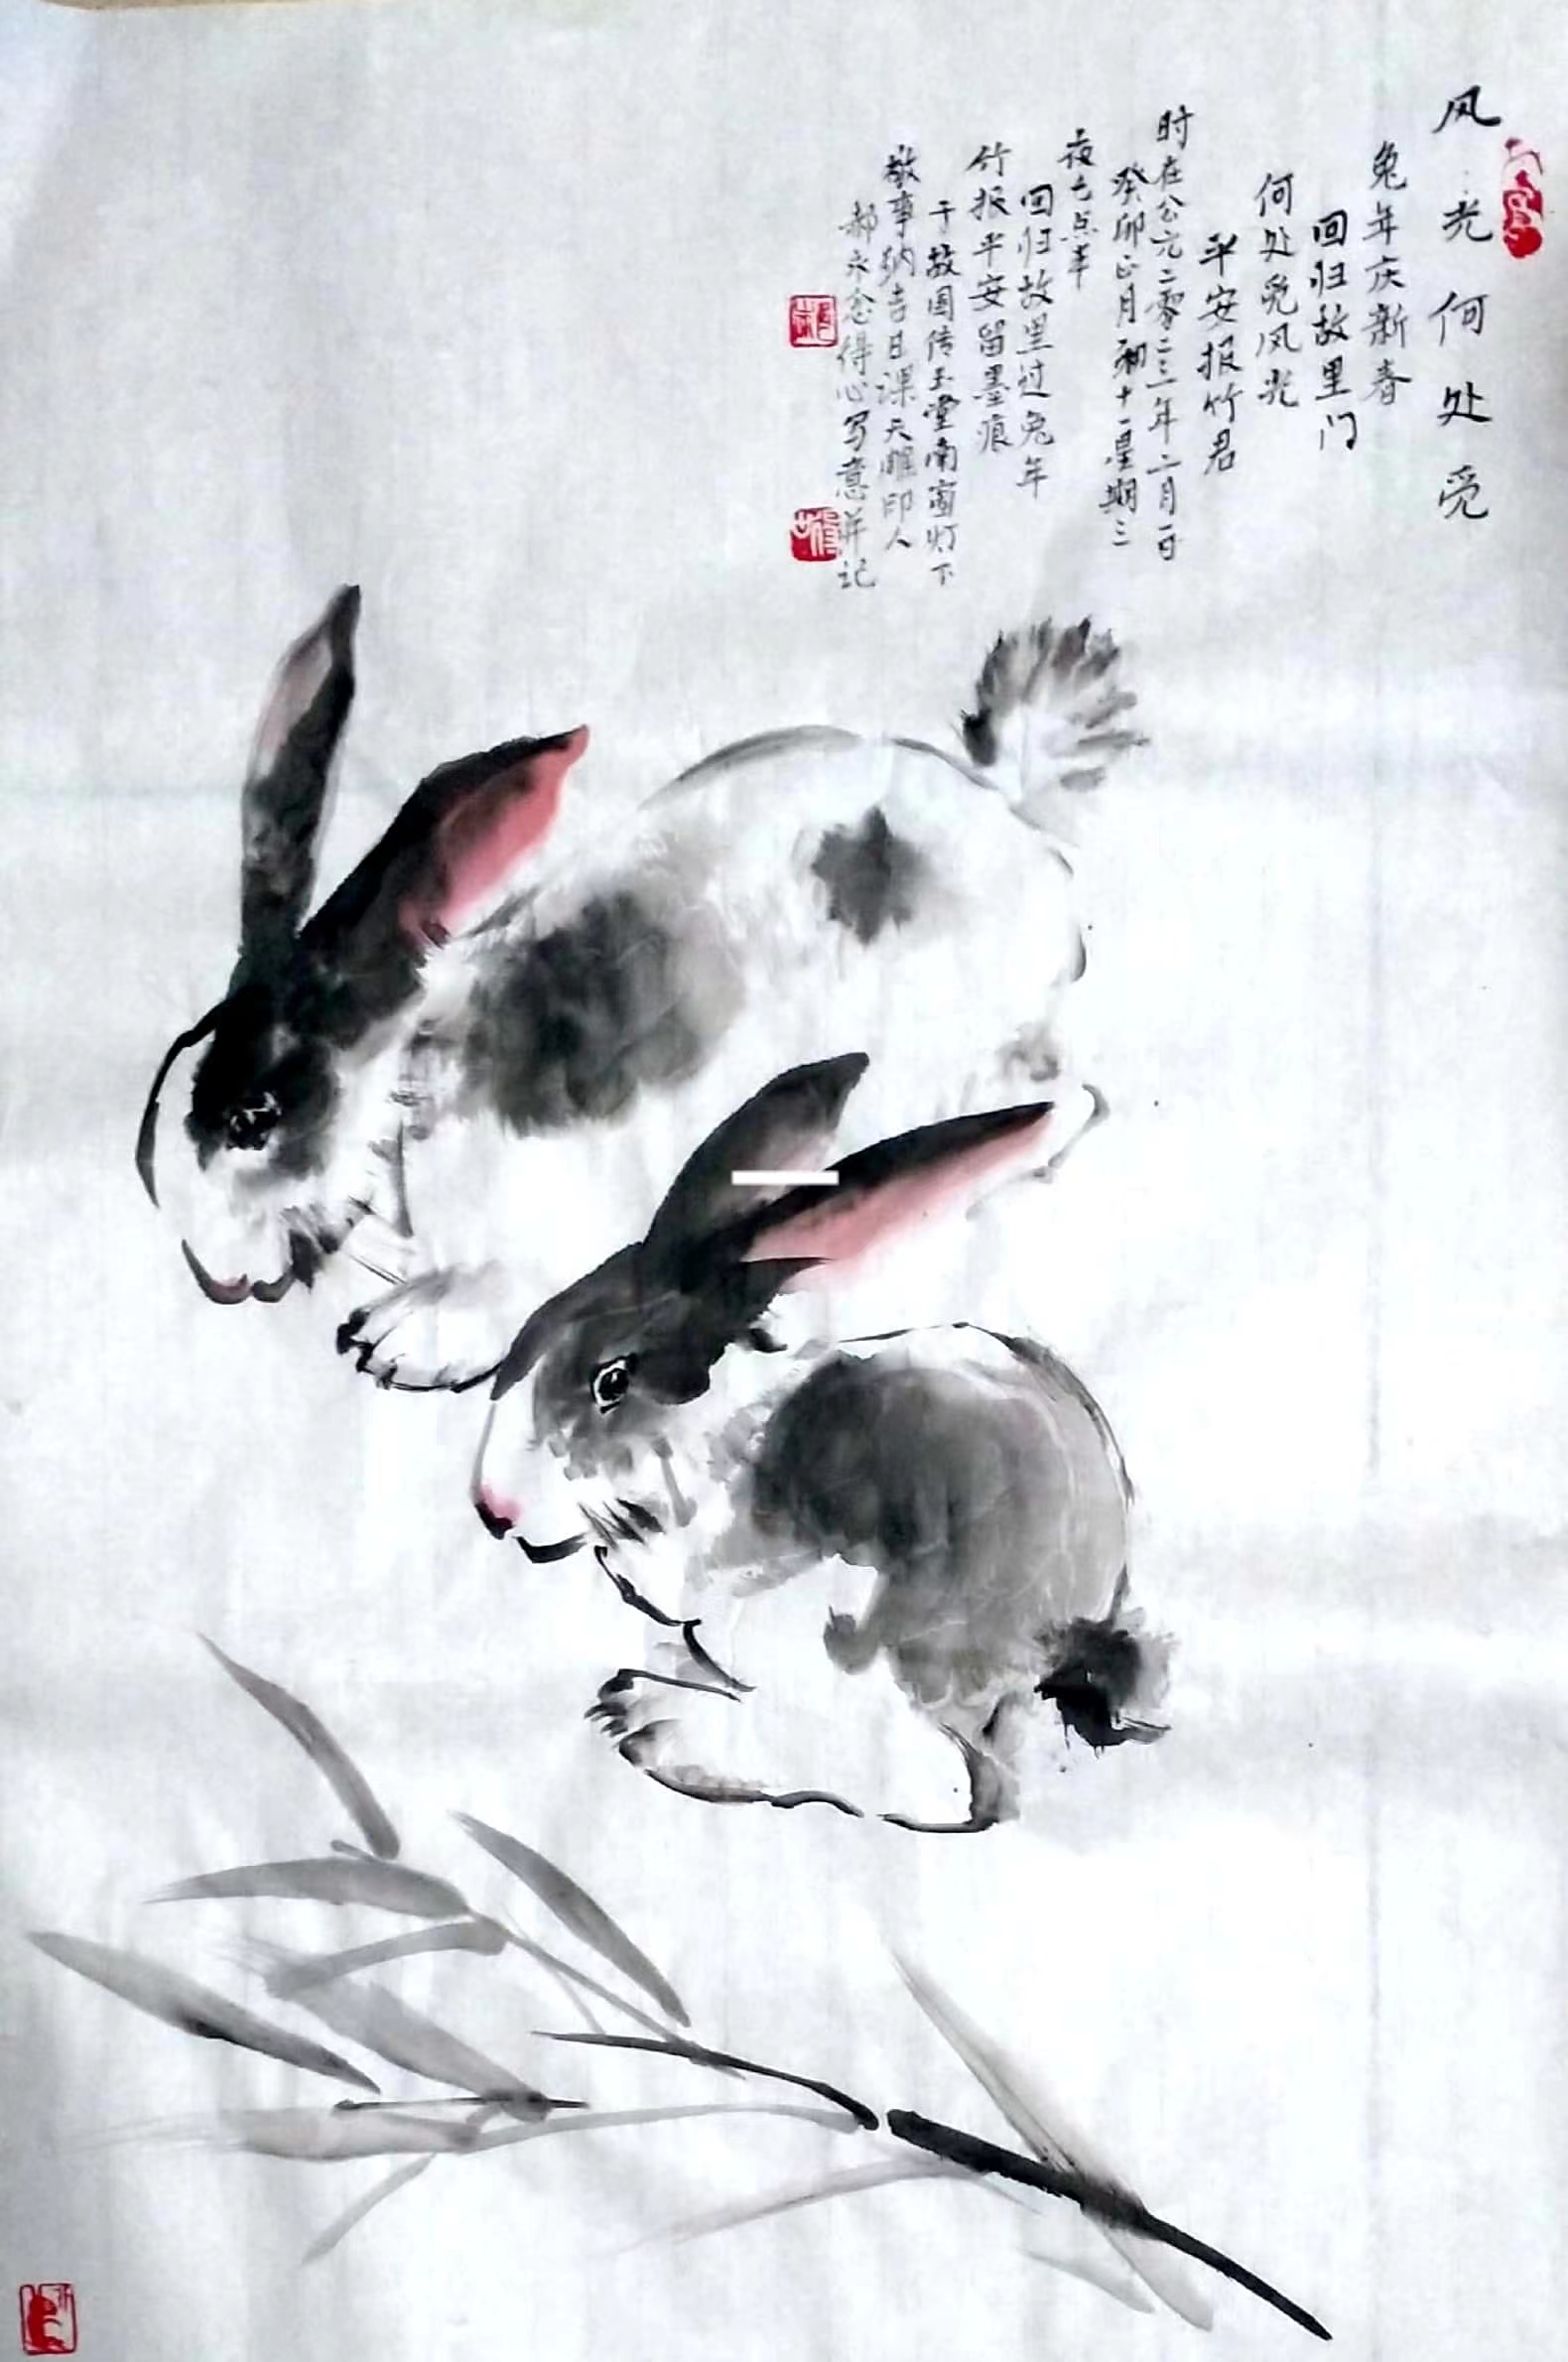 风光何处觅
兔年庆新春
回归故里门
何处觅风光
平安报竹君
时在公元二零二三年二月一日
癸卯正月初十一星期三
夜七点半
回归故里过兔年
竹报平安留墨痕
于故国传玉堂南窗灯下
敬事纳吉日课天雕印人
郝永念得心写意并记